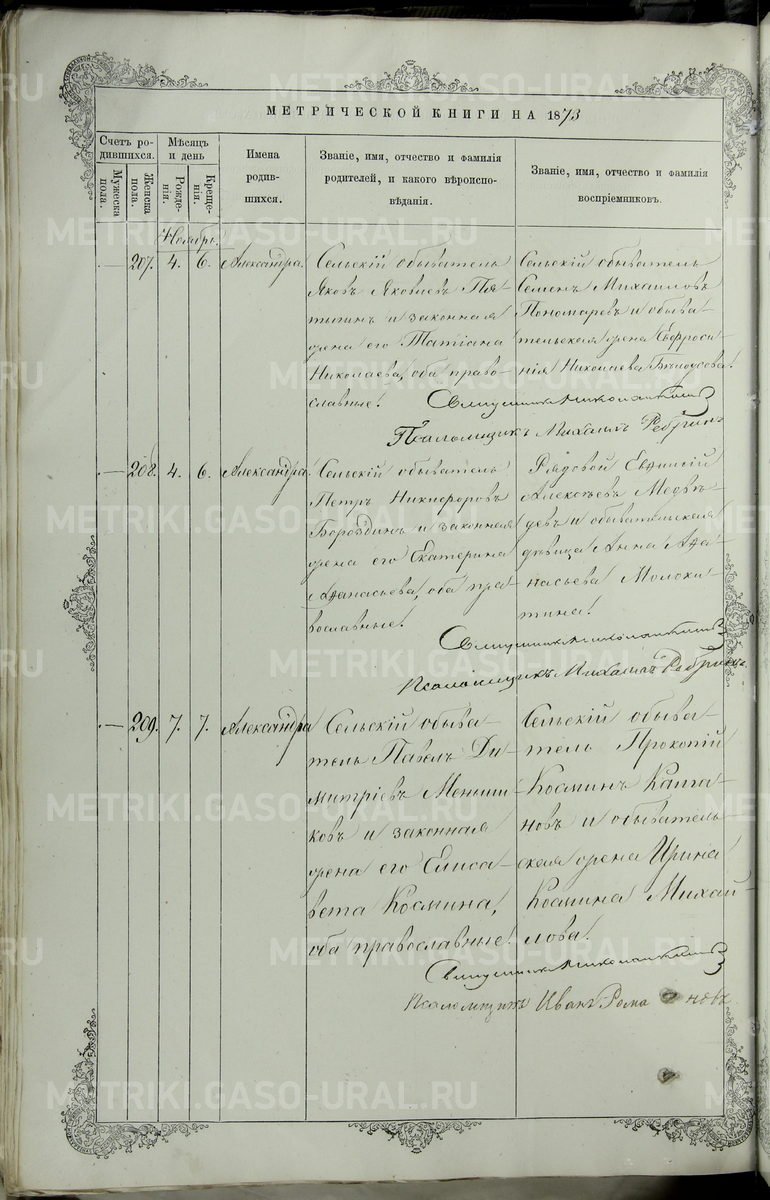 МЕТРИЧЕСКОЙ КНИГИ НА 1873
Счетъ ро-
дившихся.
Мужеска
пола.
Женска
пола.
Мѣсяцъ
и день
Рожде-
нія.
Креще-
нія.
Имена
родив-
шихся.
Званіе, имя, отчество и фамилія
родителей, и какого вѣроиспо-
вѣданія.
Званіе, имя, отчество и фамилія
воспріемниковъ.
Ноябрь.
— 207. 4. 6. Александра.
Сельскій обыватель
Яковъ Яковлевъ Пя-
тыгинъ и законная
жена его Татіана
Николаева, оба право-
славные.
Сельскій обыватель
Семенъ Михаиловъ
Пономаревъ и обыва-
тельская жена Евфроси-
нія Николаева Бѣлоусова.
Псаломщикъ Михаилъ Ребринъ
— 208. 4. 6. Александра.
Сельскій обыватель
Петръ Никифоровъ
Бороздинъ и законная
жена его Екатерина
Аѳанасьева, оба пра-
вославные.
Рядовой Евѳимій
Алексѣевъ Медвѣ-
девъ и обывательская
дѣвица Анна Аѳа-
насьева Молока-
тина.
Псаломщикъ Михаилъ Ребринъ
— 209. 7. 7. Александра
Сельскій обыва-
тель Павелъ Ди-
митріевъ Менши-
ковъ и законная
жена его Елиса-
вета Космина,
оба православные.
Сельскій обыва-
тель Прокопій
Косминъ Капта-
новъ и обыватель-
ская жена Ирина
Космина Михай-
лова.
Псаломщикъ Иванъ Романовъ
METRIKI.GASO-URAL.RU